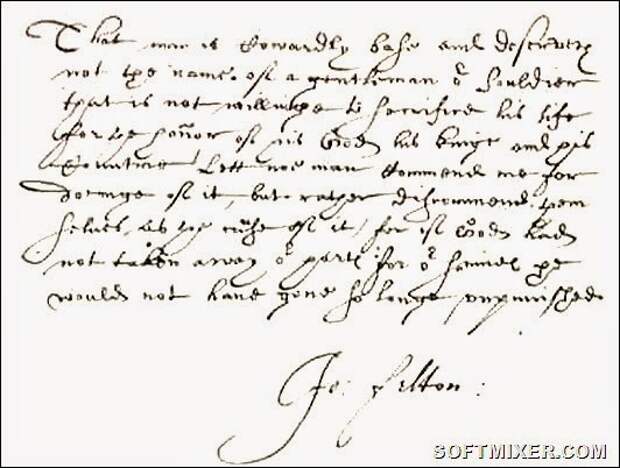 That man is Cowardly base and deserveth
not the name of a gentleman or Souldier
that is not willinge to sacrifice his life
for the honor of his God his Kinge and his
Countrie Lett noe man Commend me for
doeinge of it, but rather discommend them
selves as the cause of it, for if God had
not taken away or harts for or sinnes he
would not have gone so longe unpunished
Jo: Felton:
SOFTMIXER.COM